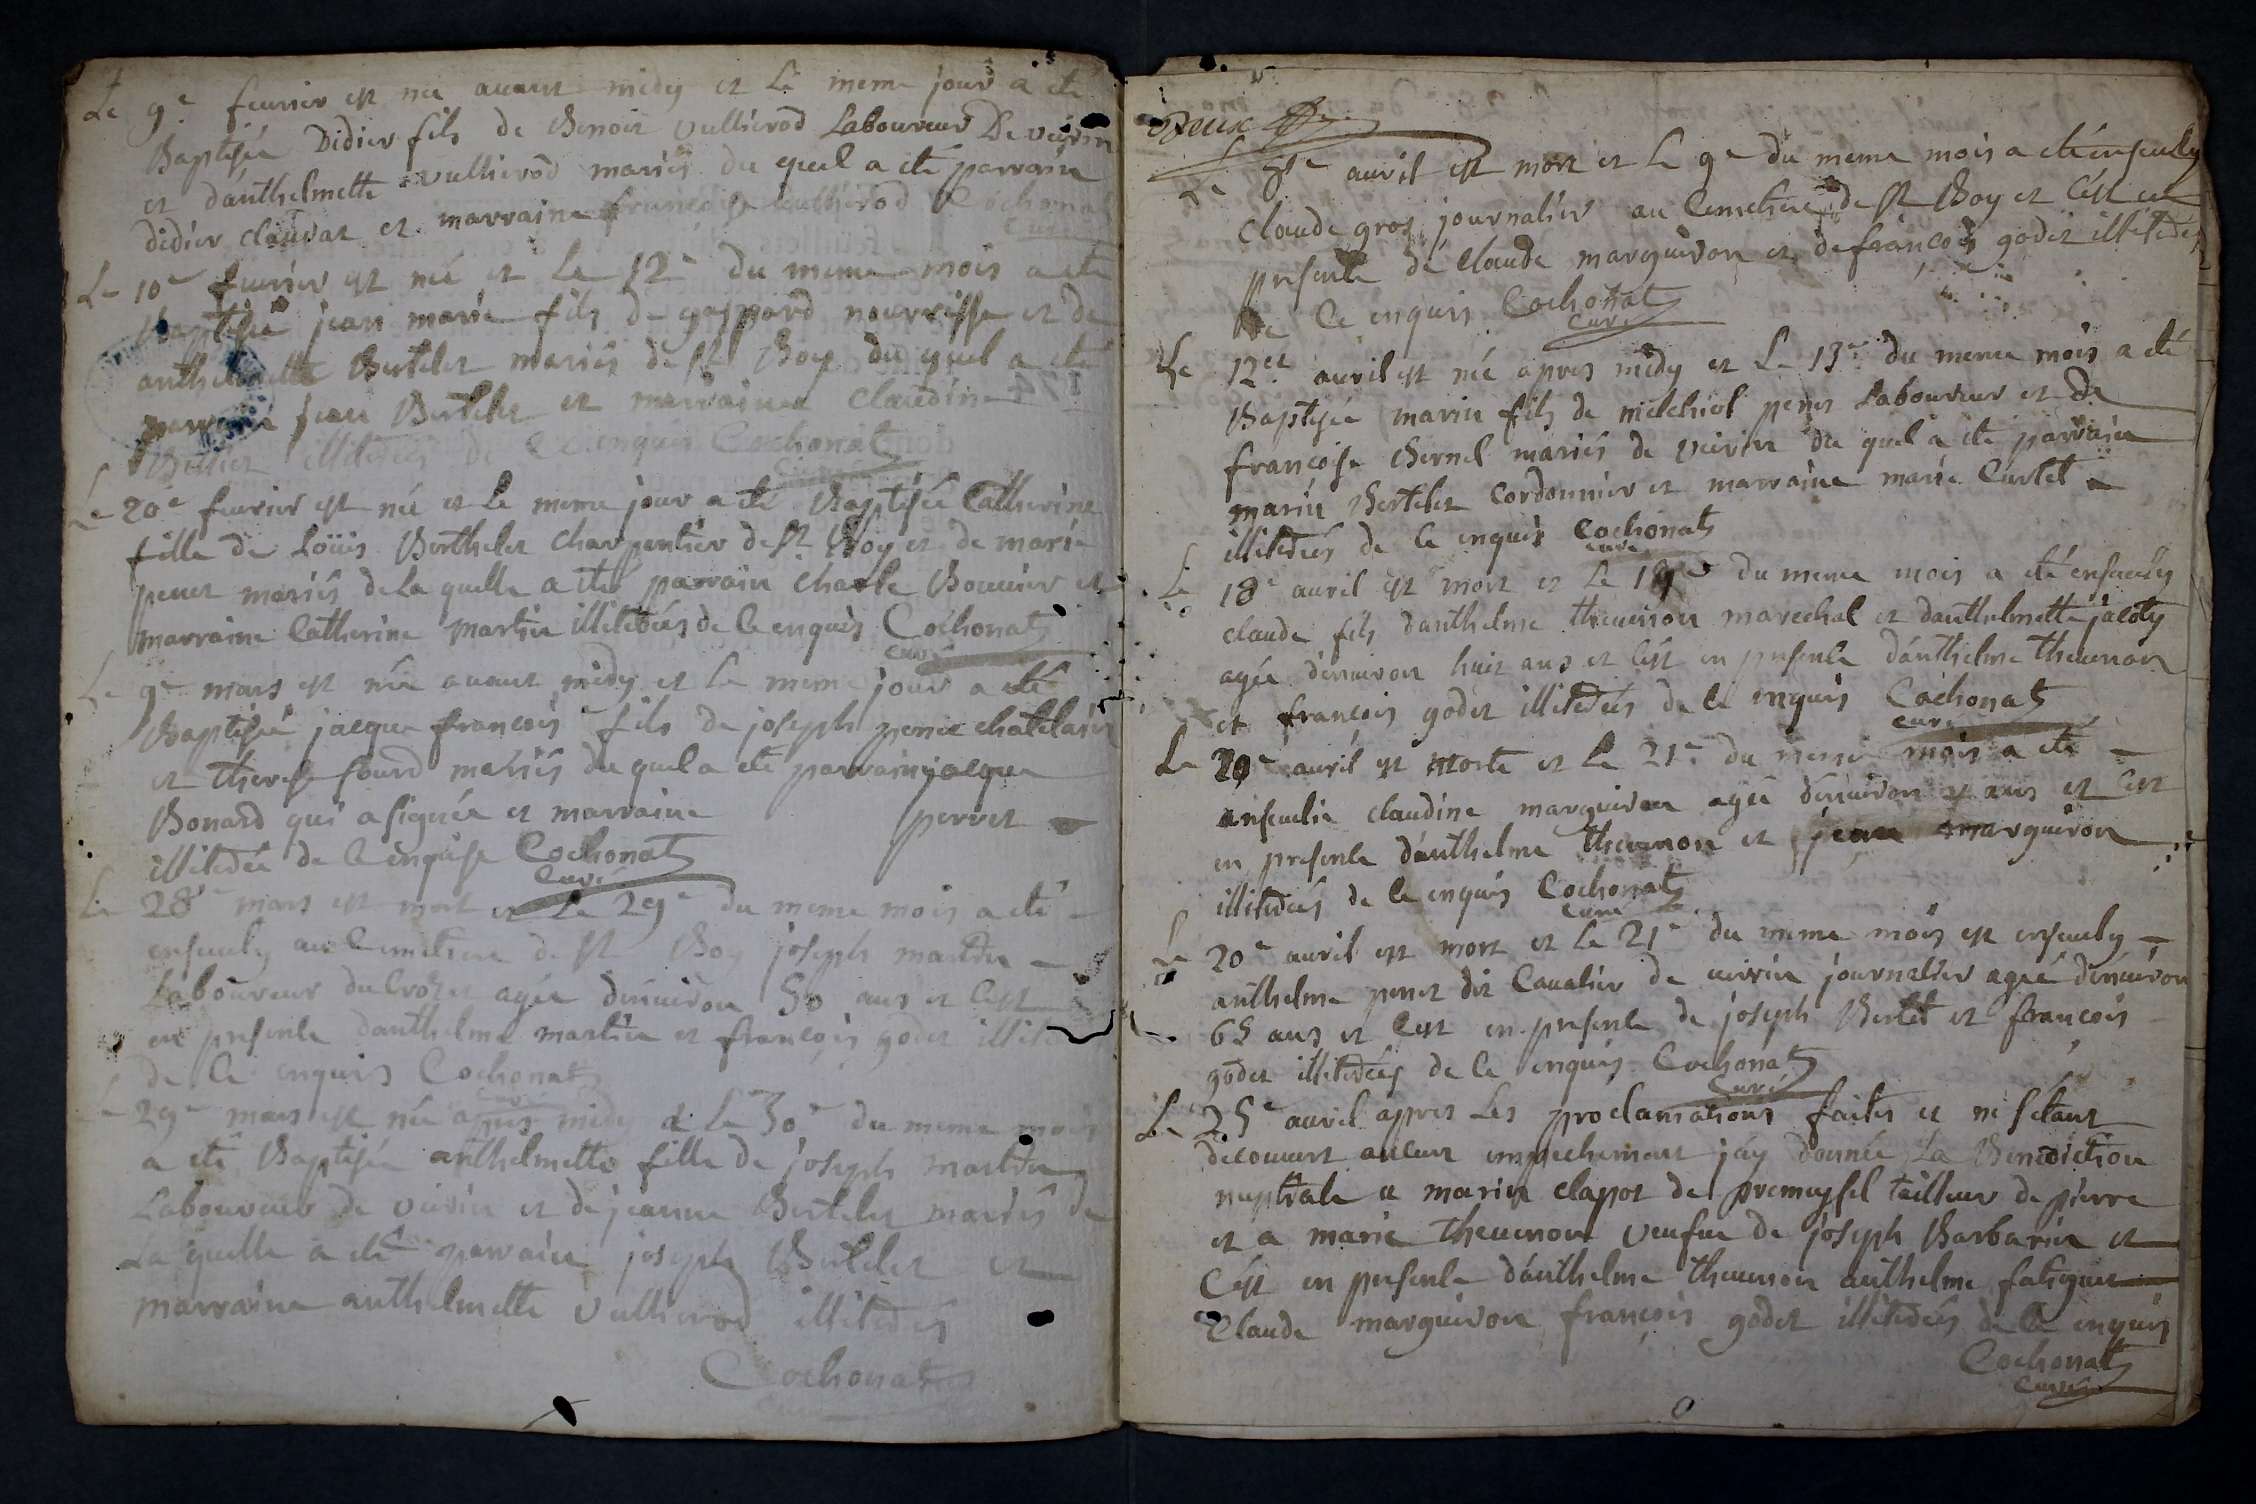 Le 9e feurier est née auant midy et Le meme jour a eté
Baptisée Didier fils de Benoit vullierod Laboureur De veirin
et dánthelmette vullierod mariés du quel a eté parrain
didier clauvat et marraine françoise vullierod Cochonat
curé
Le 10e feurier est né et Le 12e du meme mois a eté
Baptisée jean marie fils de gaspard nourrisse et de
anthelmette Bertelet mariés de St Boy du quel a eté
parrain jean Bertelet et marraine Claudine
illiterées de Ce enquis Cochonat
curé
Le 20e feurier est né et Le meme jour a eté Baptisée Catherine
fille de Loüis Berthelet Charpentier de St Boy et de marie
penet mariés de la quelle a eté parrain Charle Bouuier et
marraine Catherine martin illiterées de Ce enquis Cochonat
curé
Le 9e mars est née auant midy et Le meme jour a eté
Baptisée jacque françois fils de joseph chatelain
et therese sourd mariés du quel a eté parrain jacque
Bonard qui a signée et marraine perret
illiterée de Ce enquise Cochonat
Curé
Le 28e mars est mort et Le 29e du meme mois a eté
enseuely au Cemetiere de St Boy joseph martin
Laboureur du Crozet agée denuiron 50 ans et C'est
en presence danthelme martin et françois godet illite
de Ce enquis Cochonat
curé
Le 29e mars est née apres midy et Le 30e du meme mois
a eté Baptisée anthelmette fille de joseph martin
Laboureur de veirin et de jeanne Bertelet mariés de
La quelle a eté parrain joseph Bertelet et
marraine anthelmette vullierod illiterées
Cochonat
Deux
Le auril est mort et Le 9e du meme mois a eté enseuely
Claude gros journalier au Cemetiere de St Boy et C'est en
presence de Claude marguiron et de françois godet illiterées
de Ce enquis Cochonat
curé
Le 12e auril est né apres midy et Le 13e du meme mois a eté
Baptisée marin fils de melchiol penet Laboureur et de
françoise Bernel mariés de veirin du quel a eté parrain
marin Bertelet Cordonnier et marraine marie Curtet
illiterées de Ce enquis Cochonat
curé
Le 18e auril est mort et Le 19e du meme mois a eté enseuely
claude fils danthelme theuenon marechal et danthelmette jacoty
agée denuiron huit ans et C'est en presence dánthelme theuenon
et françois godet illiterées de Ce enquis Cochonat
curé
Le 20e auril est morte et Le 21e du meme mois a eté
enseuelie claudine marguiron agée denuiron ans et C'est
en presence dánthelme theuenon et jean marguiron
illiterées de Ce enquis Cochonat
curé
Le 20e auril est mort et Le 21e du meme mois est enseuely
anthelme penet dit Caualier de veirin journalier agée denuiron
65 ans et C'est en presence de joseph Bertet et françois
godet illiterées de Ce enquis Cochonat
Curé
Le 25e auril apres Les proclamations faites et ne sétant
découuert aucun empechement jáy donnée La Benediction
nuptiale a marin clapot de premeysel tailleur de pierre
et a marie theuenon veufue de joseph Barbarin et
C'est en presence dánthelme theuenon anthelme
Claude marguiron françois godet illiterées de Ce enquis
Cochonat
Curé